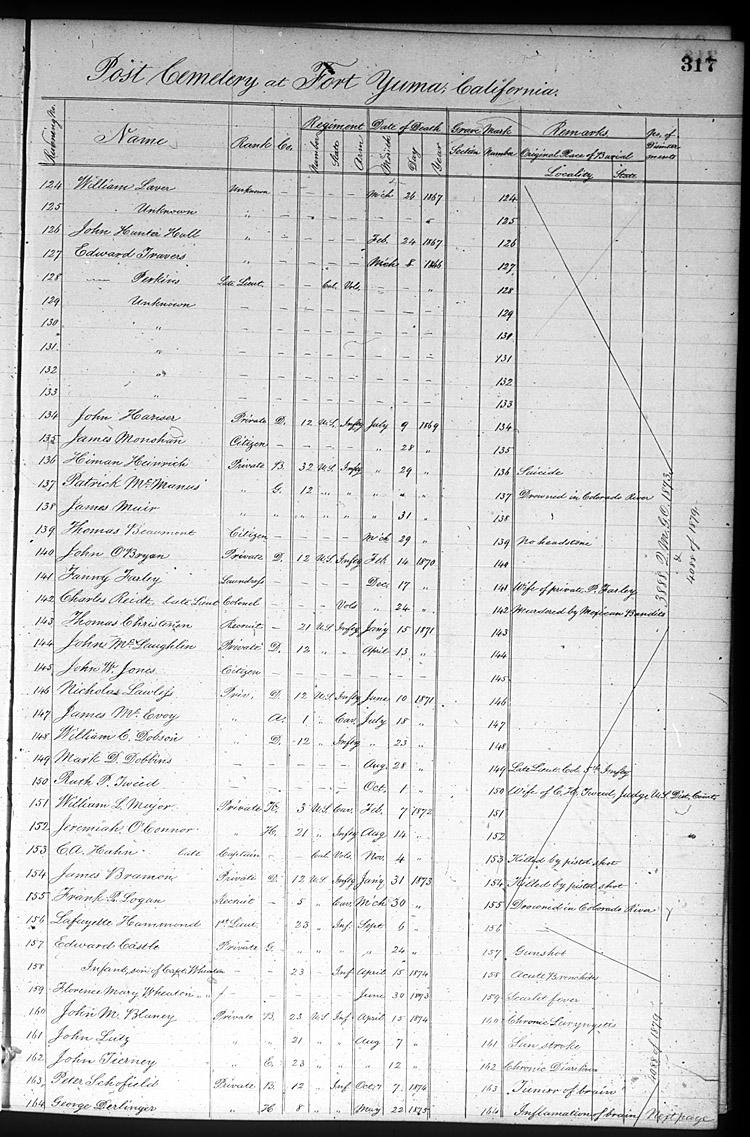 317
Post Cemetery at Fort Yuma, California.
Name Rank Co. Regiment Date of Death Grave Mark Remarks No. of
Number State Arm Month Day Year Section Number Original Place of Burial
Locality State
124 William Laver Unknown – – – – Mch 26 1867 124
125 Unknown " – – – – – – " 125
126 John Hunter Hall " – – – – Feb. 24 1867 126
127 Edward Travers – – – – – Mich 8 1866 127
128 — Perkins Late Lieut. – – Cal. Vols. – – " 128
129 Unknown – – – – – – – – 129
130 " – – – – – – – – 130
131 " – – – – – – – – 131
132 " – – – – – – – – 132
133 " – – – – – – – – 133
134 John Hauser Private D. 12 U.S. Infty July 9 1869 134
135 James Monohan Citizen – – – – " 28 " 135
136 Himan Heinrich Private B. 32 U.S. Infty " 29 " 136 Suicide
137 Patrick McManus " G. 12 " " " " " 137 Drowned in Colorado River
138 James Muir " " " " " " 31 " 138
139 Thomas Beaumont Citizen – – – – Mch 29 " 139 No headstone
140 John O'Bryan Private D. 12 U.S. Infty Feb. 14 1870 140
141 Fanny Farley Laundress – – – – Dec. 17 " 141 Wife of private P. Farley
142 Charles Reidt, late Lieut Colonel – – – Vols " 24 " 142 Murdered by Mexican Bandits
143 Thomas Christerson Recruit – 21 U.S. Infty Jan'y 15 1871 143
144 John McLaughlen Private D. 12 " " April 13 " 144
145 John W. Jones Citizen – – – – – – – 145
146 Nicholas Lawless Priv. D. 12 U.S. Infty June 10 1871 146
147 James McEvoy " A. 1 " Cav. July 18 " 147
148 William C. Dobson " D. 12 " Infty " 23 " 148
149 Mark D. Dobbins – – – – – Aug. 28 " 149 Late Lieut. Col. 5th Infty
150 Ruth P. Tweed – – – – – Oct. 1 " 150 Wife of C. H. Tweed, Judge U.S. Dist. Court
151 William L. Major Private K. 3 U.S. Cav. Feb. 7 1872 151
152 Jeremiah O'Connor " H. 21 " Infty Aug 14 " 152 "
153 C.A. Hahn late Captain – – Cal. Vols. Nov. 4 " 153 Killed by pistol shot
154 James Bramon Private D. 12 U.S. Infty Jan'y 31 1873 154 Killed by pistol shot
155 Frank P. Logan Recruit – 5 " Cav. Mch 30 " 155 Drowned in Colorado River
156 Lafayette Hammond 1st Lieut. – 23 " Inf. Sept 6 " 156 –
157 Edward Castle Private G. " " " " 24 " 157 Gunshot
158 Infant, son of Capt. Wheaton – 23 Inf. April 15 1874 158 Acute Bronchitis
159 Florence Mary Wheaton – – – – June 30 1873 159 Scarlet fever
160 John M. Blaney Private B. 23 U.S. Inf. April 15 1874 160 Chronic Laryngitis
161 John Lutz " " 21 " " Aug 7 " 161 Sun stroke
162 John Tierney " E. 23 " " " 12 " 162 Chronic Diarrhea
163 Peter Schofield Private B. 12 " Inf. Oct. 7 1874 163 Tumor of brain
164 George Derlinger " H 8 " " May 22 1875 164 Inflamation of brain Next page
3888 Q.M.G.O. 1873
&
4088 of 1879
4088 of 1879